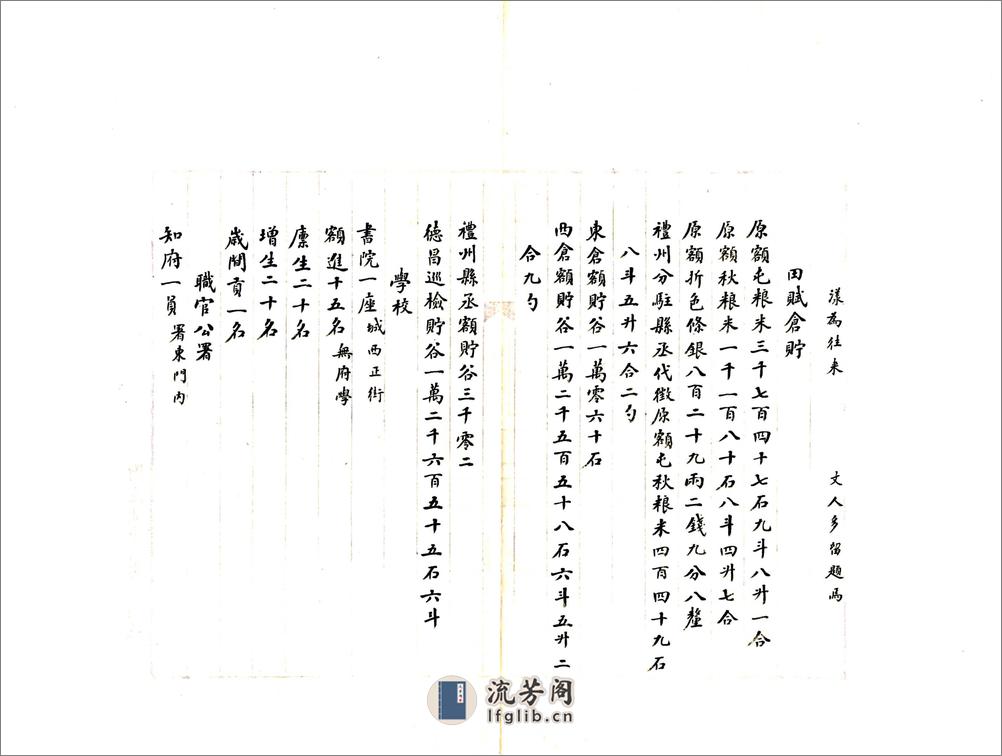 漾為往來　文人多留題焉
田賦倉貯
原額屯粮米三千七百四十七石九斗八升一合
原額秋粮米一千一百八十石八斗四升七合
原額折色條銀八百二十九兩二錢九分八釐
禮州分駐縣丞代徵原額屯秋粮米四百四十九石
八斗五升六合二勺
東倉額貯谷一萬零六十石
西倉額貯谷一萬二千五百五十八石六斗五升二
合九勺
禮州縣丞額貯谷三千零二
德昌巡檢貯谷一萬二千六百五十五石六斗
學校
書院一座城西正街
額進十五名無府學
廩生二十名
增生二十名
歲間貢一名
職官公署
知府一員署東門內
流芳阁
lfglib.cn